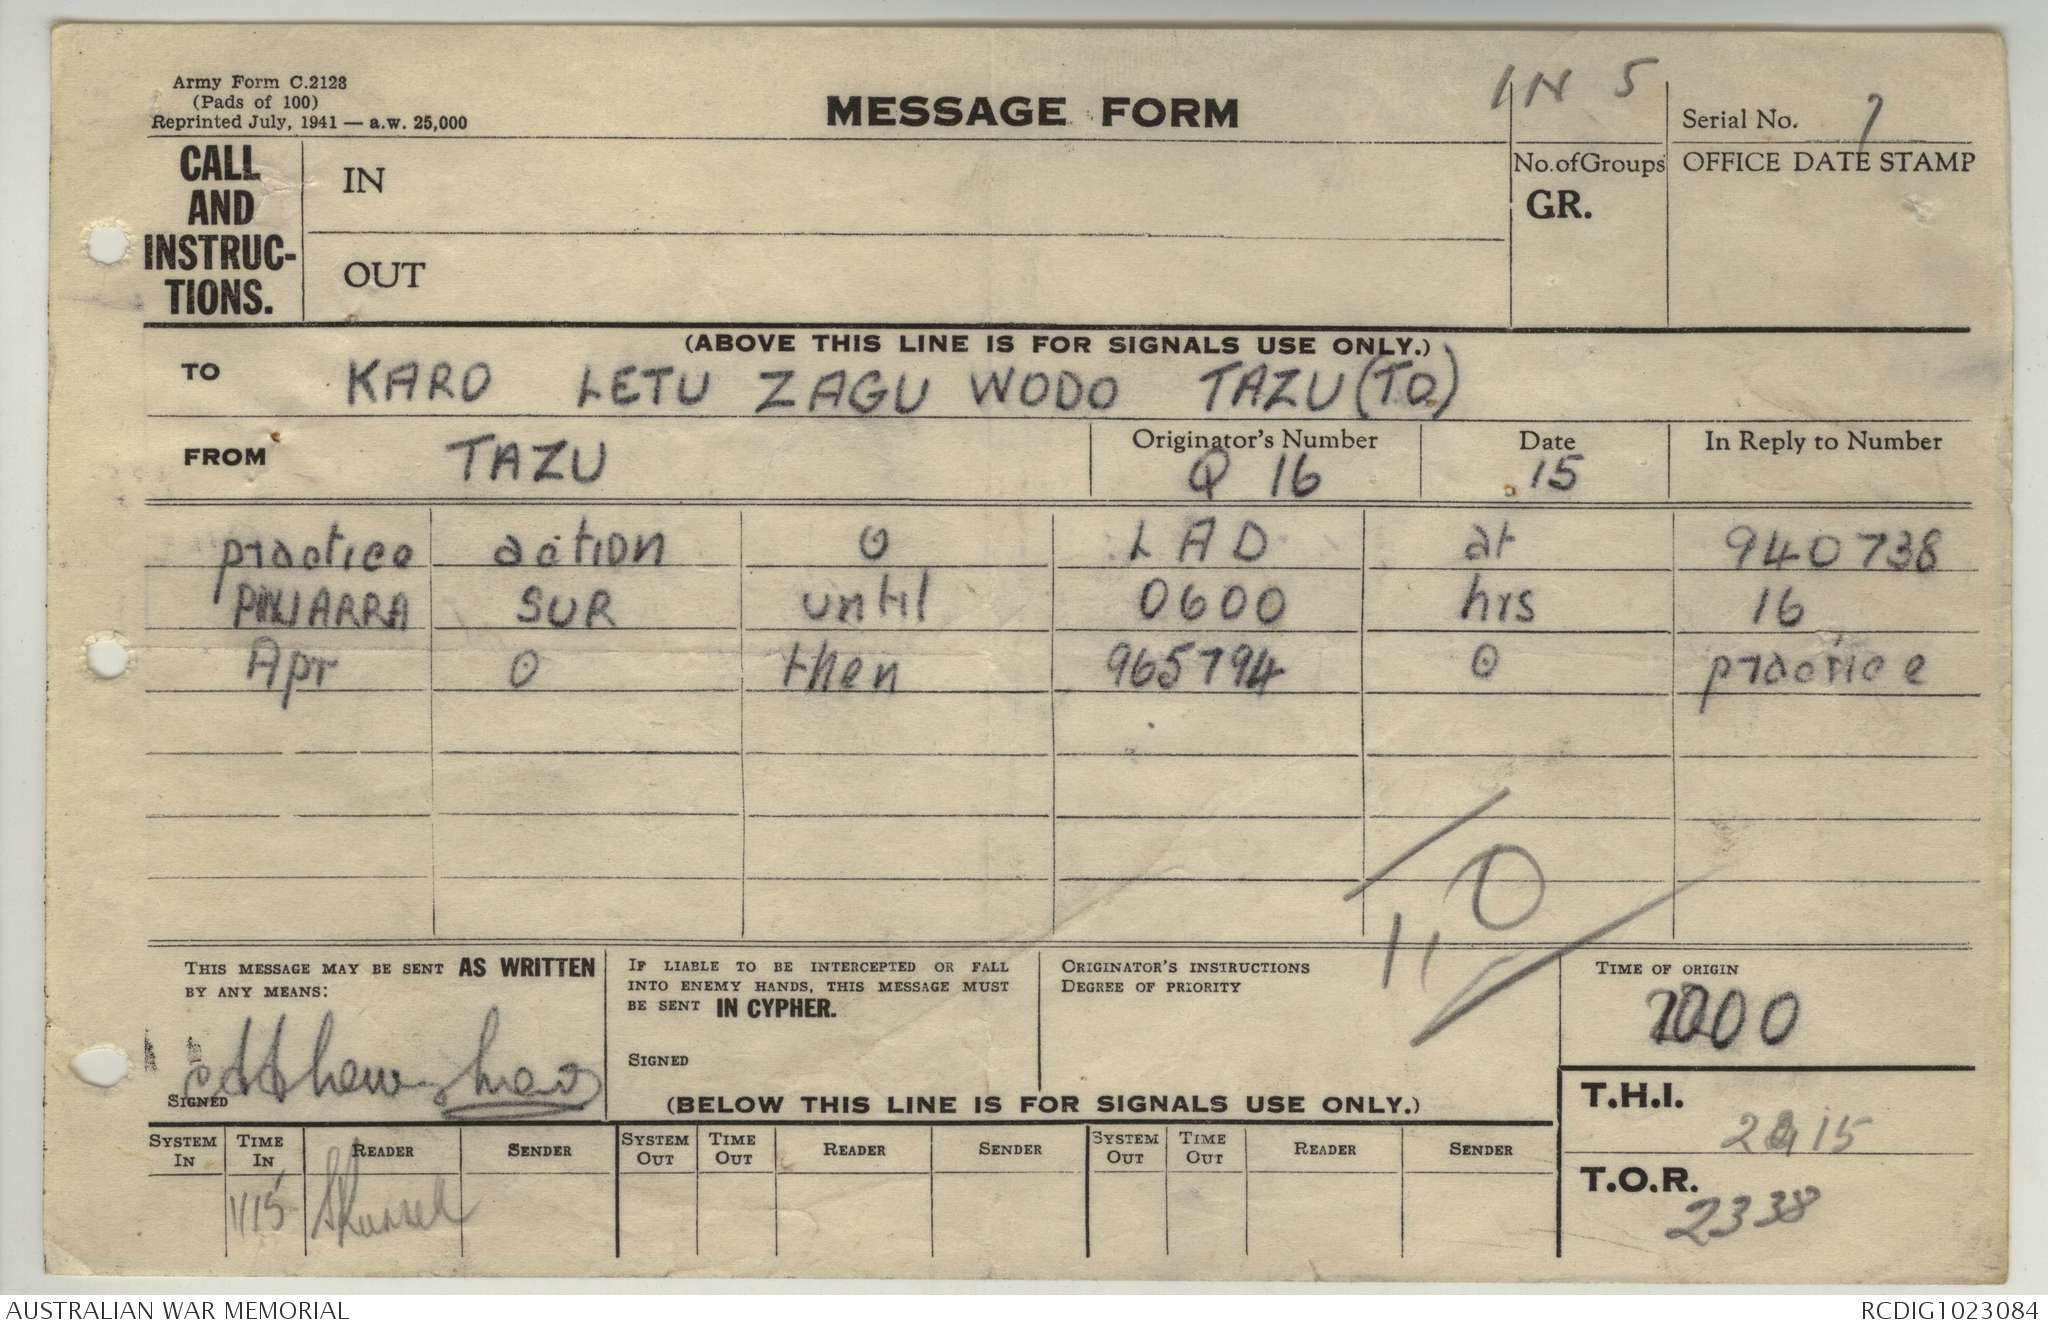 Army Form C.2128
(Pads of 100)
Reprinted July, 1941 — a.w. 25,000
MESSAGE FORM
IN 5
Serial No. 7
CALL AND INSTRUC-TIONS.
IN
OUT
No. of Groups
GR.
OFFICE DATE STAMP
(ABOVE THIS LINE IS FOR SIGNALS USE ONLY.)
TO KARO LETU ZAGU WODO TAZU (TO)
FROM TAZU
Originator's Number
Q 16
Date
15
In Reply to Number
practice action 0 LAD at 940738
PINJARRA SUR until 0600 hrs 16
Apr 0 then 965794 0 practice
THIS MESSAGE MAY BE SENT AS WRITTEN
BY ANY MEANS:
SIGNED
IF LIABLE TO BE INTERCEPTED OR FALL
INTO ENEMY HANDS, THIS MESSAGE MUST
BE SENT IN CYPHER.
SIGNED
ORIGINATOR'S INSTRUCTIONS
DEGREE OF PRIORITY
TIME OF ORIGIN
(BELOW THIS LINE IS FOR SIGNALS USE ONLY.)
T.H.I. 2215
T.O.R. 2338
SYSTEM IN TIME IN READER SENDER SYSTEM OUT TIME OUT READER SENDER SYSTEM OUT TIME OUT READER SENDER
1115
AUSTRALIAN WAR MEMORIAL
RCDIG1023084